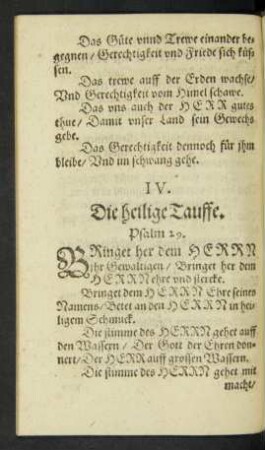 Das Güte vnnd Trewe einander be-
gegnen / Gerechtigkeit vnd Friede sich küs-
sen.
Das trewe auff der Erden wachse /
Vnd Gerechtigkeit vom Himel schawe.
Das vns auch der HERR gutes
thue / Damit vnser Land sein Gewechs
gebe.
Das Gerechtigkeit dennoch für ihm
bleibe / Vnd im schwang gehe.
IV.
Die heilige Tauffe.
Psalm 29.
BRinget her dem HERRN
ihr Gewaltigen / Bringet her dem
HERRN ehre vnd stercke.
Bringet dem HERRN Ehre seines
Namens / Betet an den HERRN in hei-
ligem Schmuck.
Die stimme des HERRN gehet auff
den Wassern / Der Gott der Ehren don-
nert / Der HERR auff grossen Wassern.
Die stimme des HERRN gehet mit
macht /